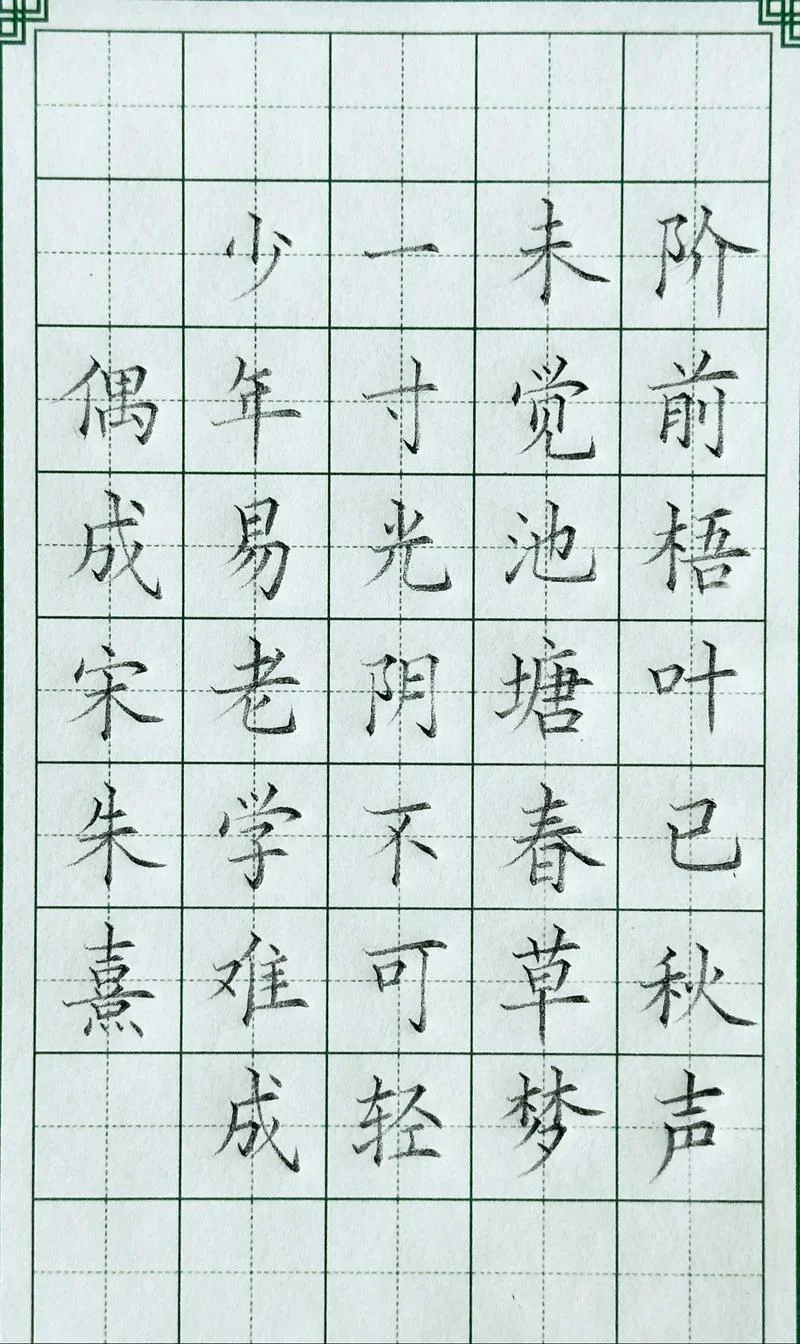 偶成宋朱熹
少年易老学难成
一寸光阴不可轻
未觉池塘春草梦
阶前梧叶已秋声